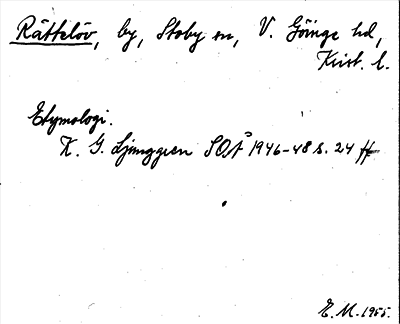 Rättelöv, by, Stoby sn, V. Göinge hd,
Krist. l.
Etymologi.
K. G. Ljunggren SOÅ 1946-48 s. 24 ff
E. M. 1955.